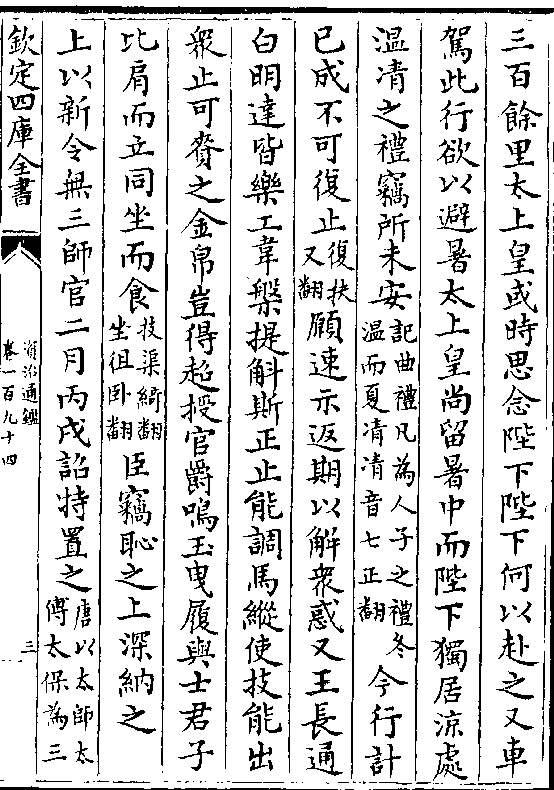 三百餘里太上皇或時思念陛下陛下何以赴之又車
駕此行欲以避暑太上皇尚留暑中而陛下獨居涼處
温凊之禮竊所未安記曲禮凡為人子之禮冬温而夏凊凊音七正翻今行計
已成不可復止復扶又翻願速示返期以解衆惑又王長通
白明達皆樂工韋槃提斛斯正止能調馬縱使技能出
衆止可賚之金帛豈得超授官爵鳴玉曳履與士君子
比肩而立同坐而食技渠綺翻坐徂卧翻臣竊恥之上深納之
上以新令無三師官二月丙戌詔特置之唐以太師太傅太保為三
欽定四庫全書
資治通鑑
卷一百九十四
三